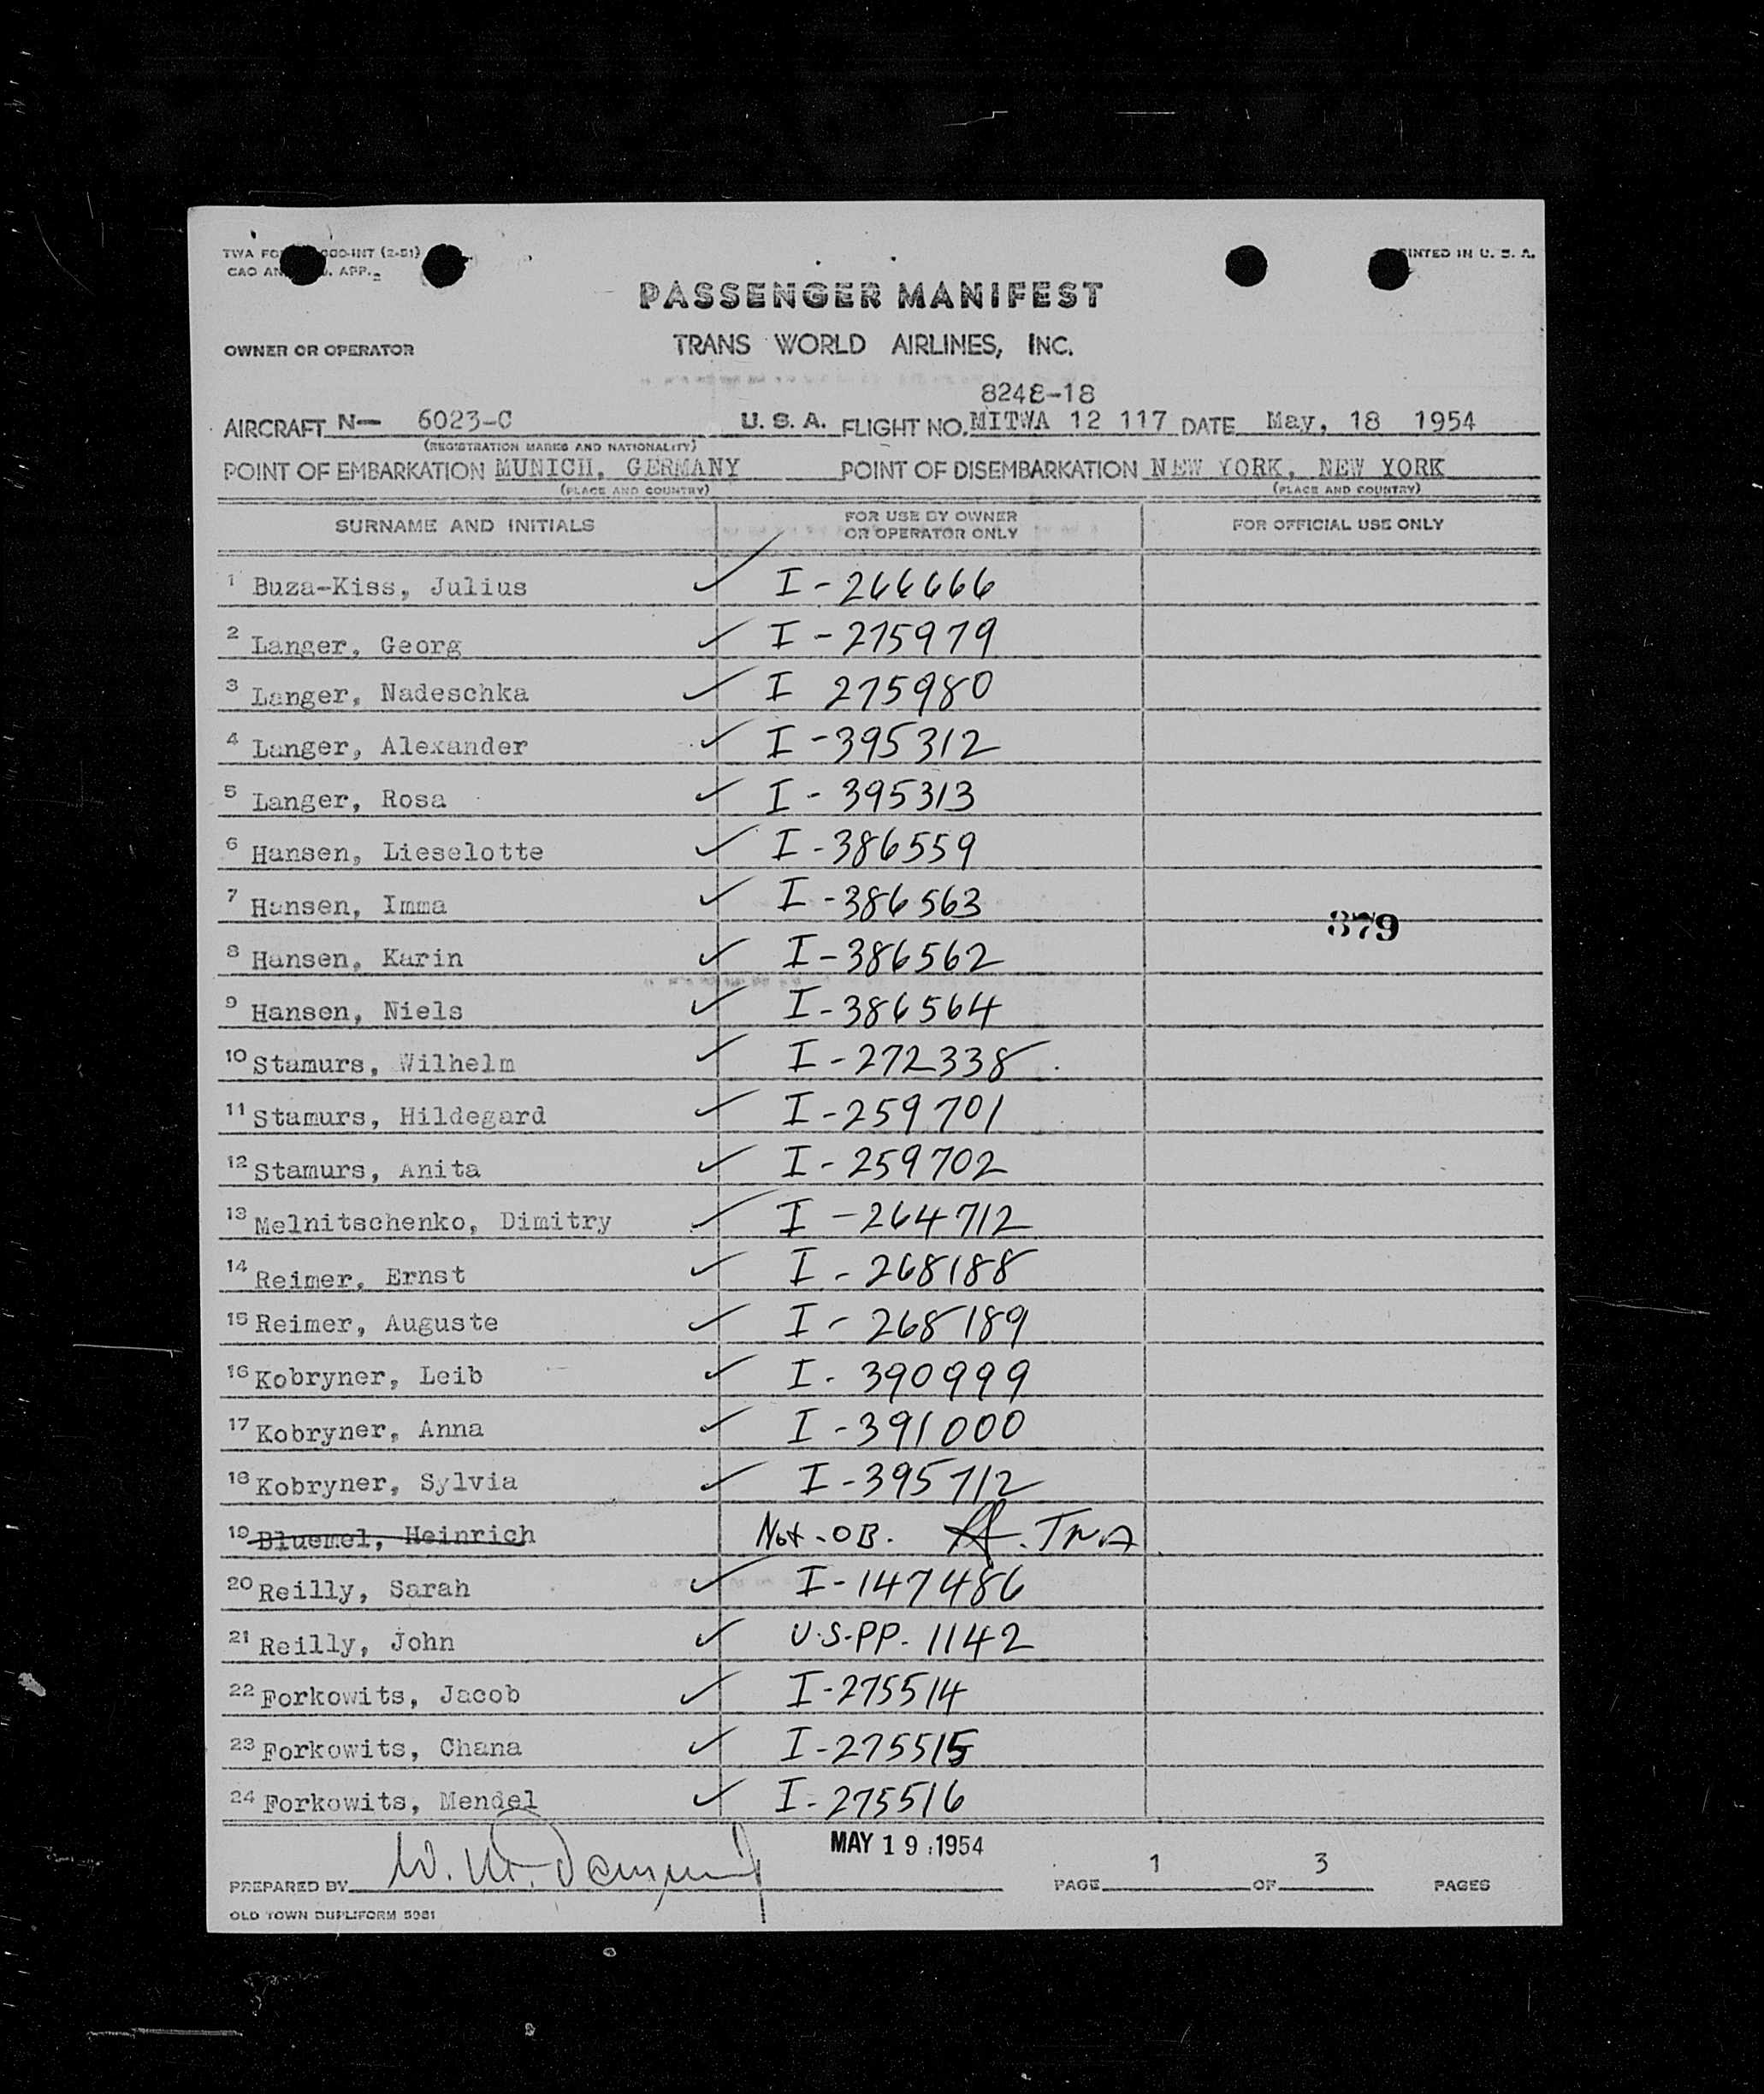 TWA FO 000-INT (2-51)
CAO AN . APP.
PRINTED IN U. S. A.
PASSENGER MANIFEST
OWNER OR OPERATOR TRANS WORLD AIRLINES, INC.
8248-18
AIRCRAFT N- 6023-C U. S. A. FLIGHT NO. MITWA 12 117 DATE May, 18 1954
(REGISTRATION MARKS AND NATIONALITY)
POINT OF EMBARKATION MUNICH, GERMANY POINT OF DISEMBARKATION NEW YORK, NEW YORK
(PLACE AND COUNTRY) (PLACE AND COUNTRY)
SURNAME AND INITIALS FOR USE BY OWNER OR OPERATOR ONLY FOR OFFICIAL USE ONLY
1 Buza-Kiss, Julius ✓ I-266666
2 Langer, Georg ✓ I-275979
3 Langer, Nadeschka ✓ I 275980
4 Langer, Alexander ✓ I-395312
5 Langer, Rosa ✓ I-395313
6 Hansen, Lieselotte ✓ I-386559
7 Hansen, Imma ✓ I-386563
379
8 Hansen, Karin ✓ I-386562
9 Hansen, Niels ✓ I-386564
10 Stamurs, Wilhelm ✓ I-272338
11 Stamurs, Hildegard ✓ I-259701
12 Stamurs, Anita ✓ I-259702
13 Melnitschenko, Dimitry ✓ I-264712
14 Reimer, Ernst ✓ I-268188
15 Reimer, Auguste ✓ I-268189
16 Kobryner, Leib ✓ I-390999
17 Kobryner, Anna ✓ I-391000
18 Kobryner, Sylvia ✓ I-395712
19 Bluemel, Heinrich Not-OB.
20 Reilly, Sarah ✓ I-147486
21 Reilly, John ✓ U.S.PP. 1142
22 Forkowits, Jacob ✓ I-275514
23 Forkowits, Chana ✓ I-275515
24 Forkowits, Mendel ✓ I-275516
MAY 19 1954
PREPARED BY PAGE 1 OF 3 PAGES
OLD TOWN DUPLIFORM 5981